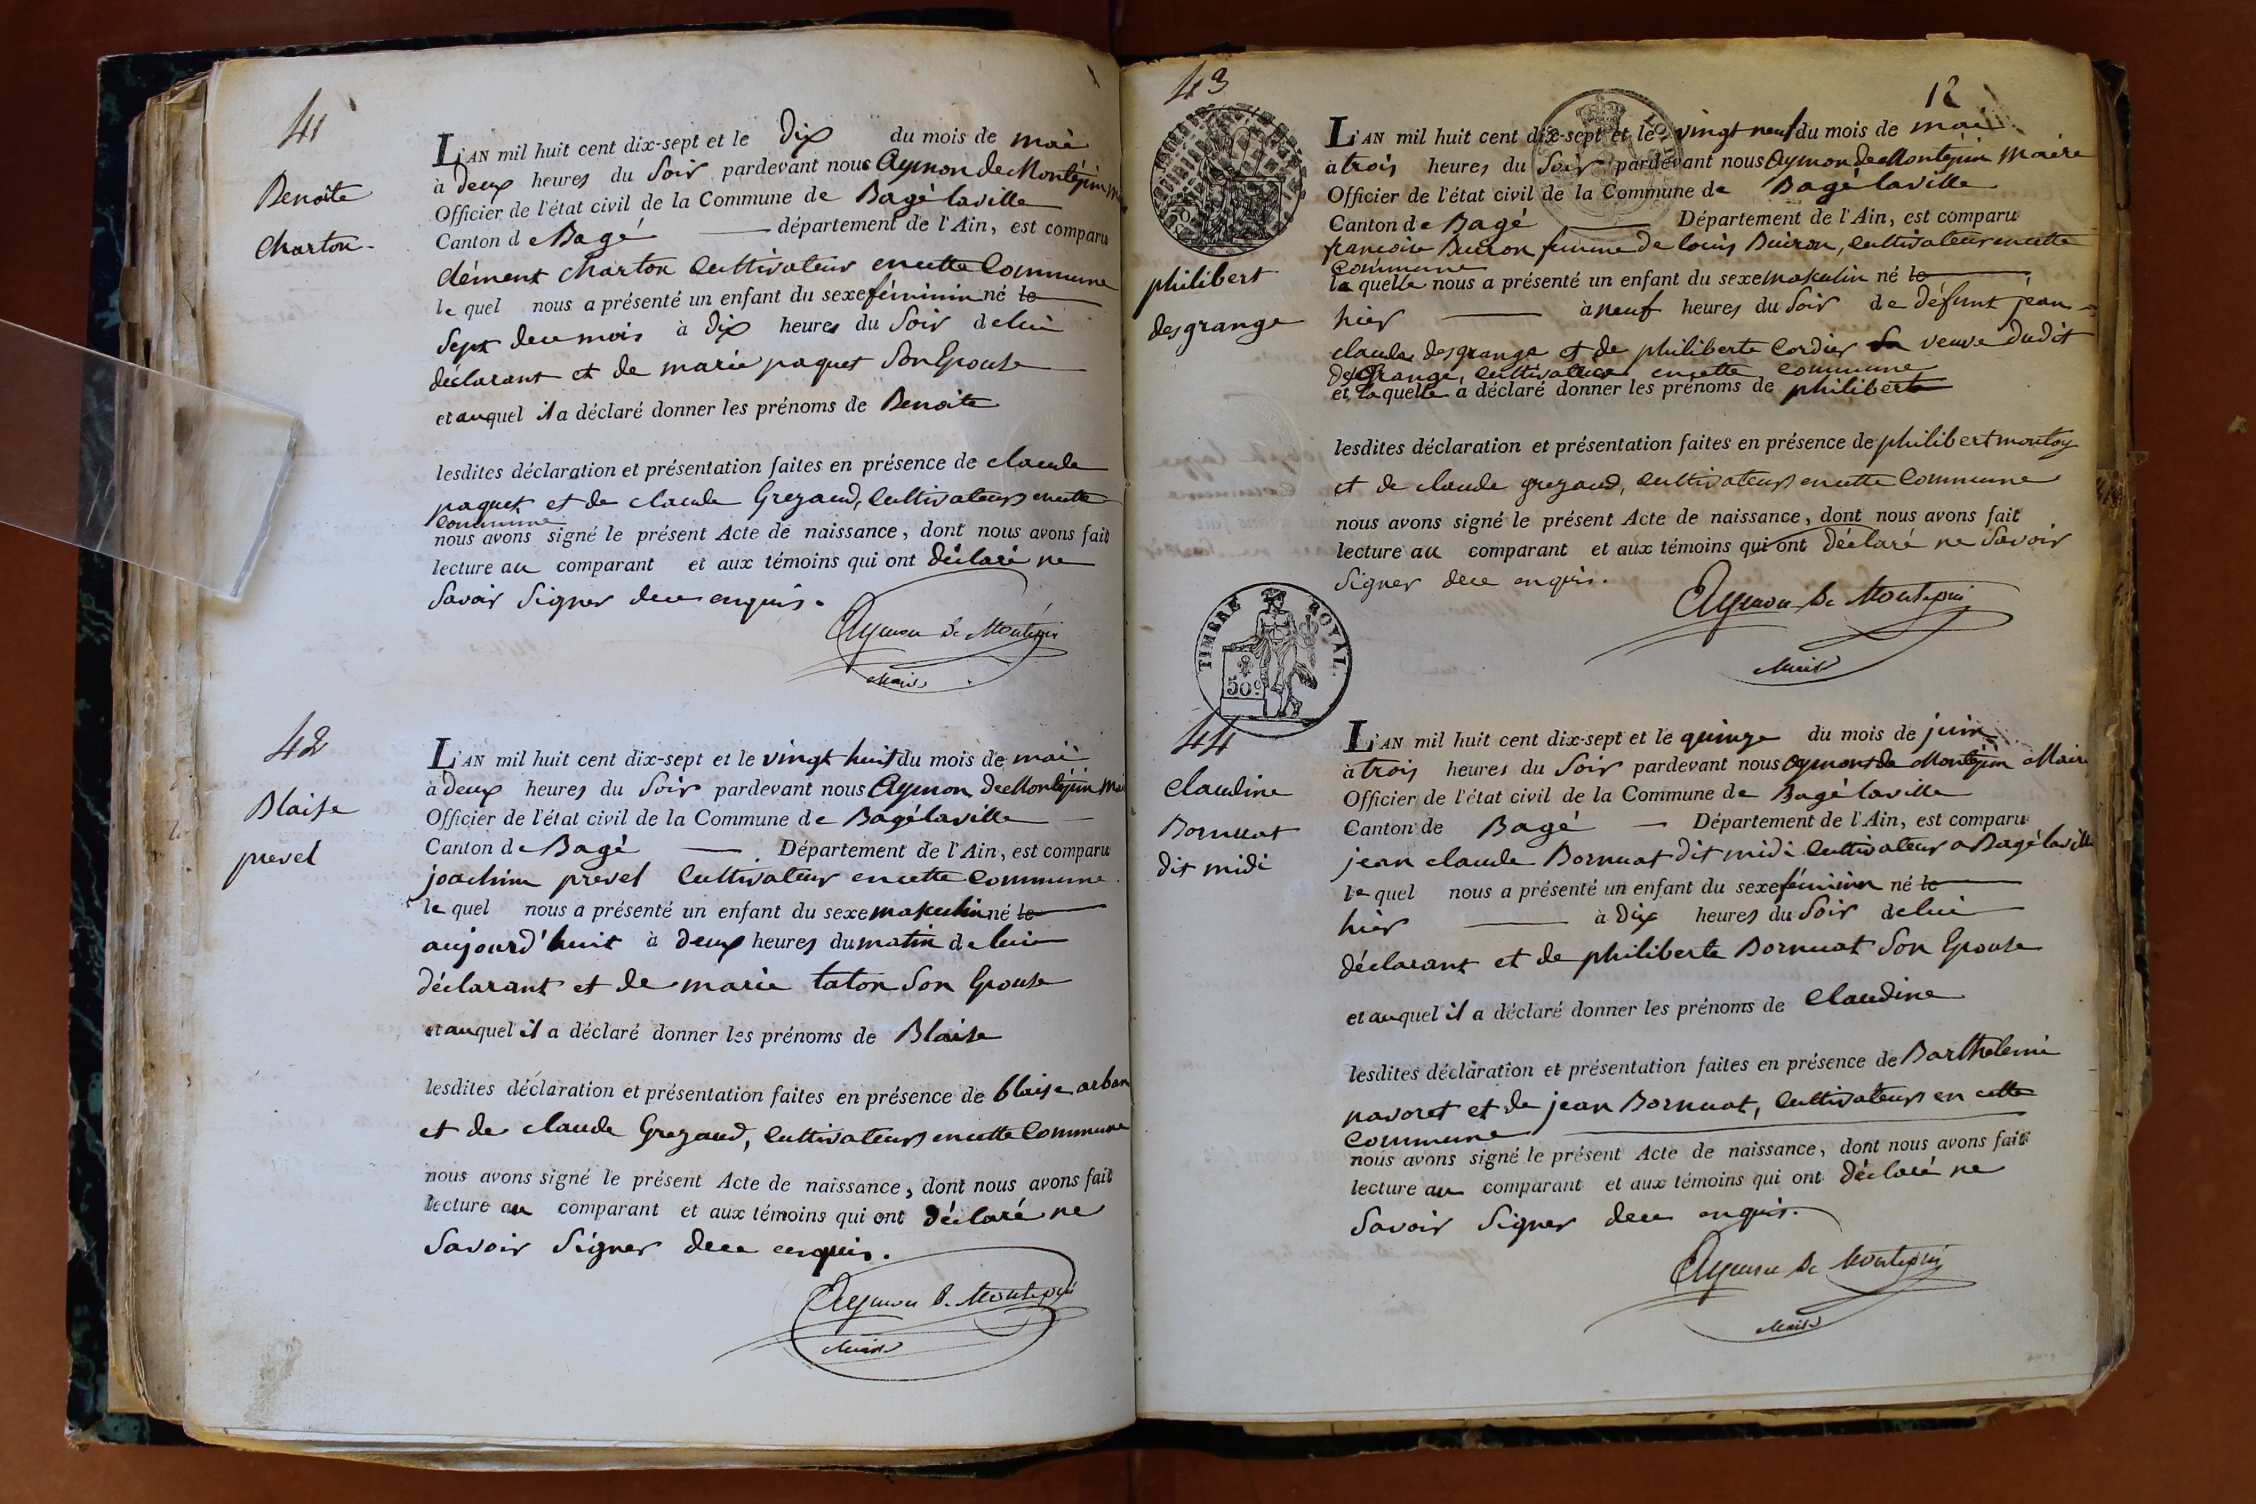 41
Benoite
Charton
L'AN mil huit cent dix-sept et le Dix du mois de mai
à deux heures du Soir pardevant nous Aymon de Montépin
Officier de l'état civil de la Commune de Bagé laville
Canton de Bagé département de l'Ain, est comparu
clément charton Cultivateur en cette Commune
le quel nous a présenté un enfant du sexe féminin né le
Sept de ce mois à Dix heures du Soir de lui
déclarant et de marie paquet Son Epouse
et auquel il a déclaré donner les prénoms de Benoite
lesdites déclaration et présentation faites en présence de claude
paquet et de claude Grezaud, Cultivateurs en cette
Commune
nous avons signé le présent Acte de naissance, dont nous avons fait
lecture au comparant et aux témoins qui ont déclaré ne
Savoir Signer de ce enquis.
Aymon de Montepin
Maire
42
Blaise
prevel
L'AN mil huit cent dix-sept et le vingt huit du mois de mai
à deux heures du Soir pardevant nous Aymon de Montépin
Officier de l'état civil de la Commune de Bagé laville
Canton de Bagé Département de l'Ain, est comparu
joachim prevel Cultivateur en cette Commune
le quel nous a présenté un enfant du sexe maskulin né le
aujourd'huit à deux heures du matin de lui
déclarant et de marie taton Son Epouse
et auquel il a déclaré donner les prénoms de Blaise
lesdites déclaration et présentation faites en présence de blaise arban
et de claude Grezaud, Cultivateurs en cette Commune
nous avons signé le présent Acte de naissance, dont nous avons fait
lecture au comparant et aux témoins qui ont déclaré ne
Savoir Signer de ce enquis.
Aymon de Montepin
Maire
43
12
philibert
desgrange
L'AN mil huit cent dix-sept et le vingt neuf du mois de mai
à trois heures du Soir pardevant nous Aymon de Montépin Maire
Officier de l'état civil de la Commune de Bagé laville
Canton de Bagé Département de l'Ain, est comparu
francoise Buiron femme de louis Buiron, Cultivateur en cette
Commune
la quelle nous a présenté un enfant du sexe maskulin né le
hier à neuf heures du Soir de défunt jean
claude desgrange et de philiberte Cordier sa veuve dudit
desGrange, Cultivatrice en cette commune
et laquelle a déclaré donner les prénoms de philibert
lesdites déclaration et présentation faites en présence de philibert montoy
et de claude grezaud, Cultivateurs en cette Commune
nous avons signé le présent Acte de naissance, dont nous avons fait
lecture au comparant et aux témoins qui ont déclaré ne Savoir
Signer de ce enquis.
Aymon de Montepin
Maire
TIMBRE ROYAL.
50c
44
Claudine
Bornuat
dit midi
L'AN mil huit cent dix-sept et le quinze du mois de juin
à trois heures du Soir pardevant nous Aymon de Montépin Maire
Officier de l'état civil de la Commune de Bagé laville
Canton de Bagé Département de l'Ain, est comparu
jean claude Bornuat dit midi Cultivateur a Bagé laville
le quel nous a présenté un enfant du sexe féminin né le
hier à Dix heures du Soir de lui
déclarant et de philiberte Bornuat Son Epouse
et auquel il a déclaré donner les prénoms de Claudine
lesdites déclaration et présentation faites en présence de Barthelemi
navoret et de jean Bornuat, Cultivateurs en cette
Commune
nous avons signé le présent Acte de naissance, dont nous avons fait
lecture au comparant et aux témoins qui ont déclaré ne
Savoir Signer de ce enquis.
Aymon de Montepin
Maire